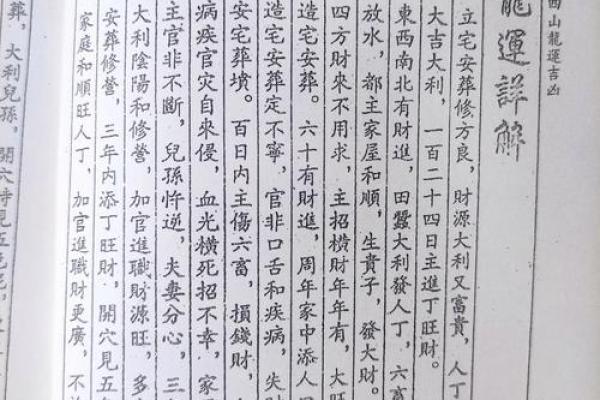 西山龍運吉凶
龍運詳解
立宅安葬修方良，財源大利又富貴，人丁
大吉大利，一百二十四日主進丁旺財。
東西南北有財進，田蠶大利發人丁，六畜
放水，都主家屋和順，生貴子，發大財。
四方財來不用求，主招橫財年年有，大旺
造宅安葬。六十有財進，周年家中添人
造宅安葬定不寧，官非口舌和疾病，失財
安宅葬墳。百日內主傷六畜，損錢財，
病疾官灾自來侵，血光橫死招不幸，家
主官非不斷，兒孫忤逆，夫妻分心，三
大利陰陽和修營，加官進職財源旺，多
安葬修營，三年內添丁旺財，開穴見五
家庭和順旺人丁，加官進職財更廣，不
葬，大利兒孫，開穴時見五色